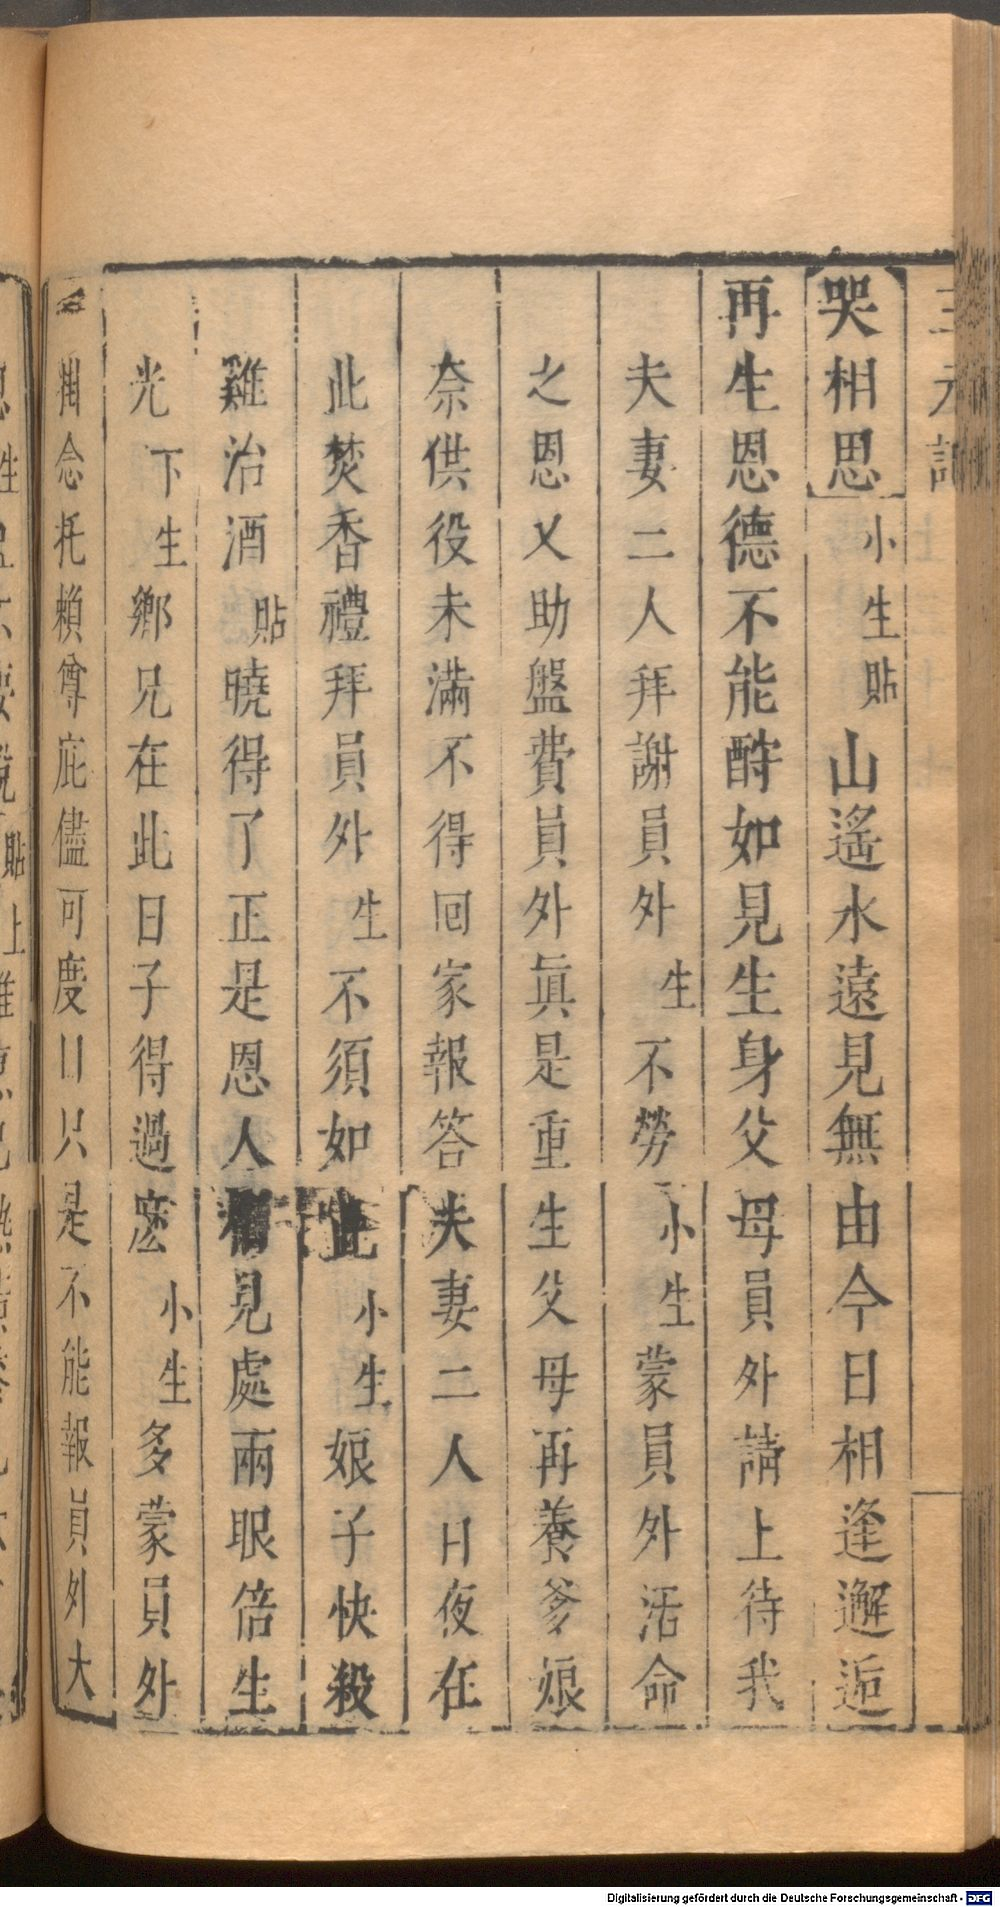 哭相思小生貼山遙水遠見無由今日相逢邂逅
再生恩德不能酧如見生身父母員外請上待我
夫妻二人拜謝員外生不勞小生蒙員外活命
之恩乂助盤費員外眞是重生父母再養爹娘
奈供役未滿不得囘家報答夫妻二人日夜在
此焚香禮拜員外生不須如此小生娘子快殺
雞治酒貼曉得了正是恩人相見處兩眼倍生
光下生鄉兄在此日子得過麽小生多蒙員外
掛念托賴尊庇儘可度日只是不能報員外大
Digitalisierung gefördert durch die Deutsche Forschungsgemeinschaft - DFG